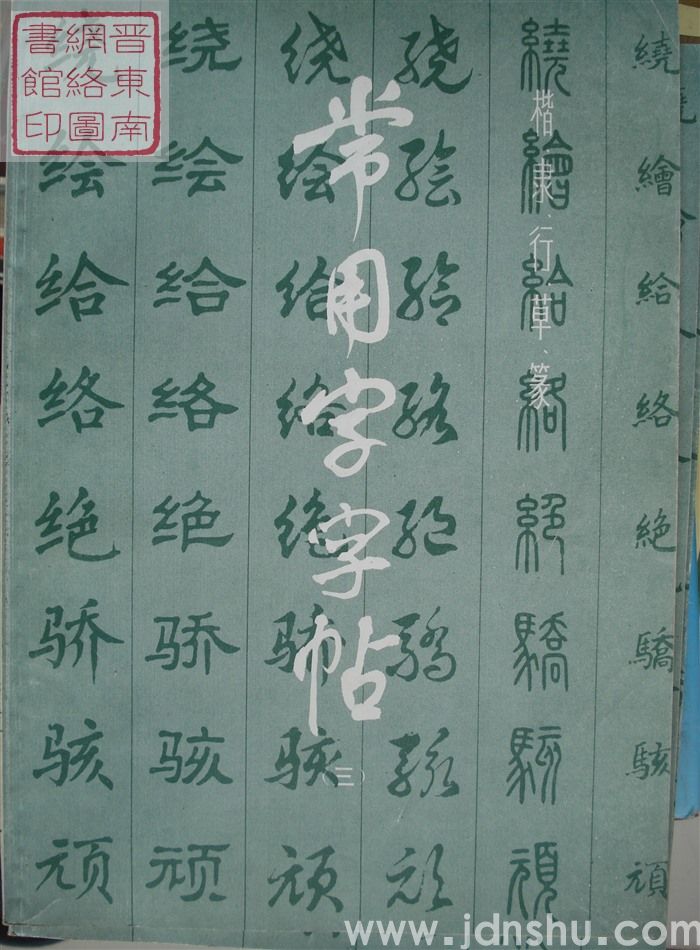 晋東南
網絡圖
書館印
常用字字帖
(三)
楷、隶、行、草、篆
绕 绕 绕 绕 繞 繞
绘 绘 绘 绘 繪 繪
给 给 给 给 給 給
络 络 络 络 絡 絡
绝 绝 绝 绝 絕 絕
骄 骄 骄 骄 驕 驕
骇 骇 骇 骇 駭 駭
顽 顽 顽 顽 頑 頑
www.jdnshu.com